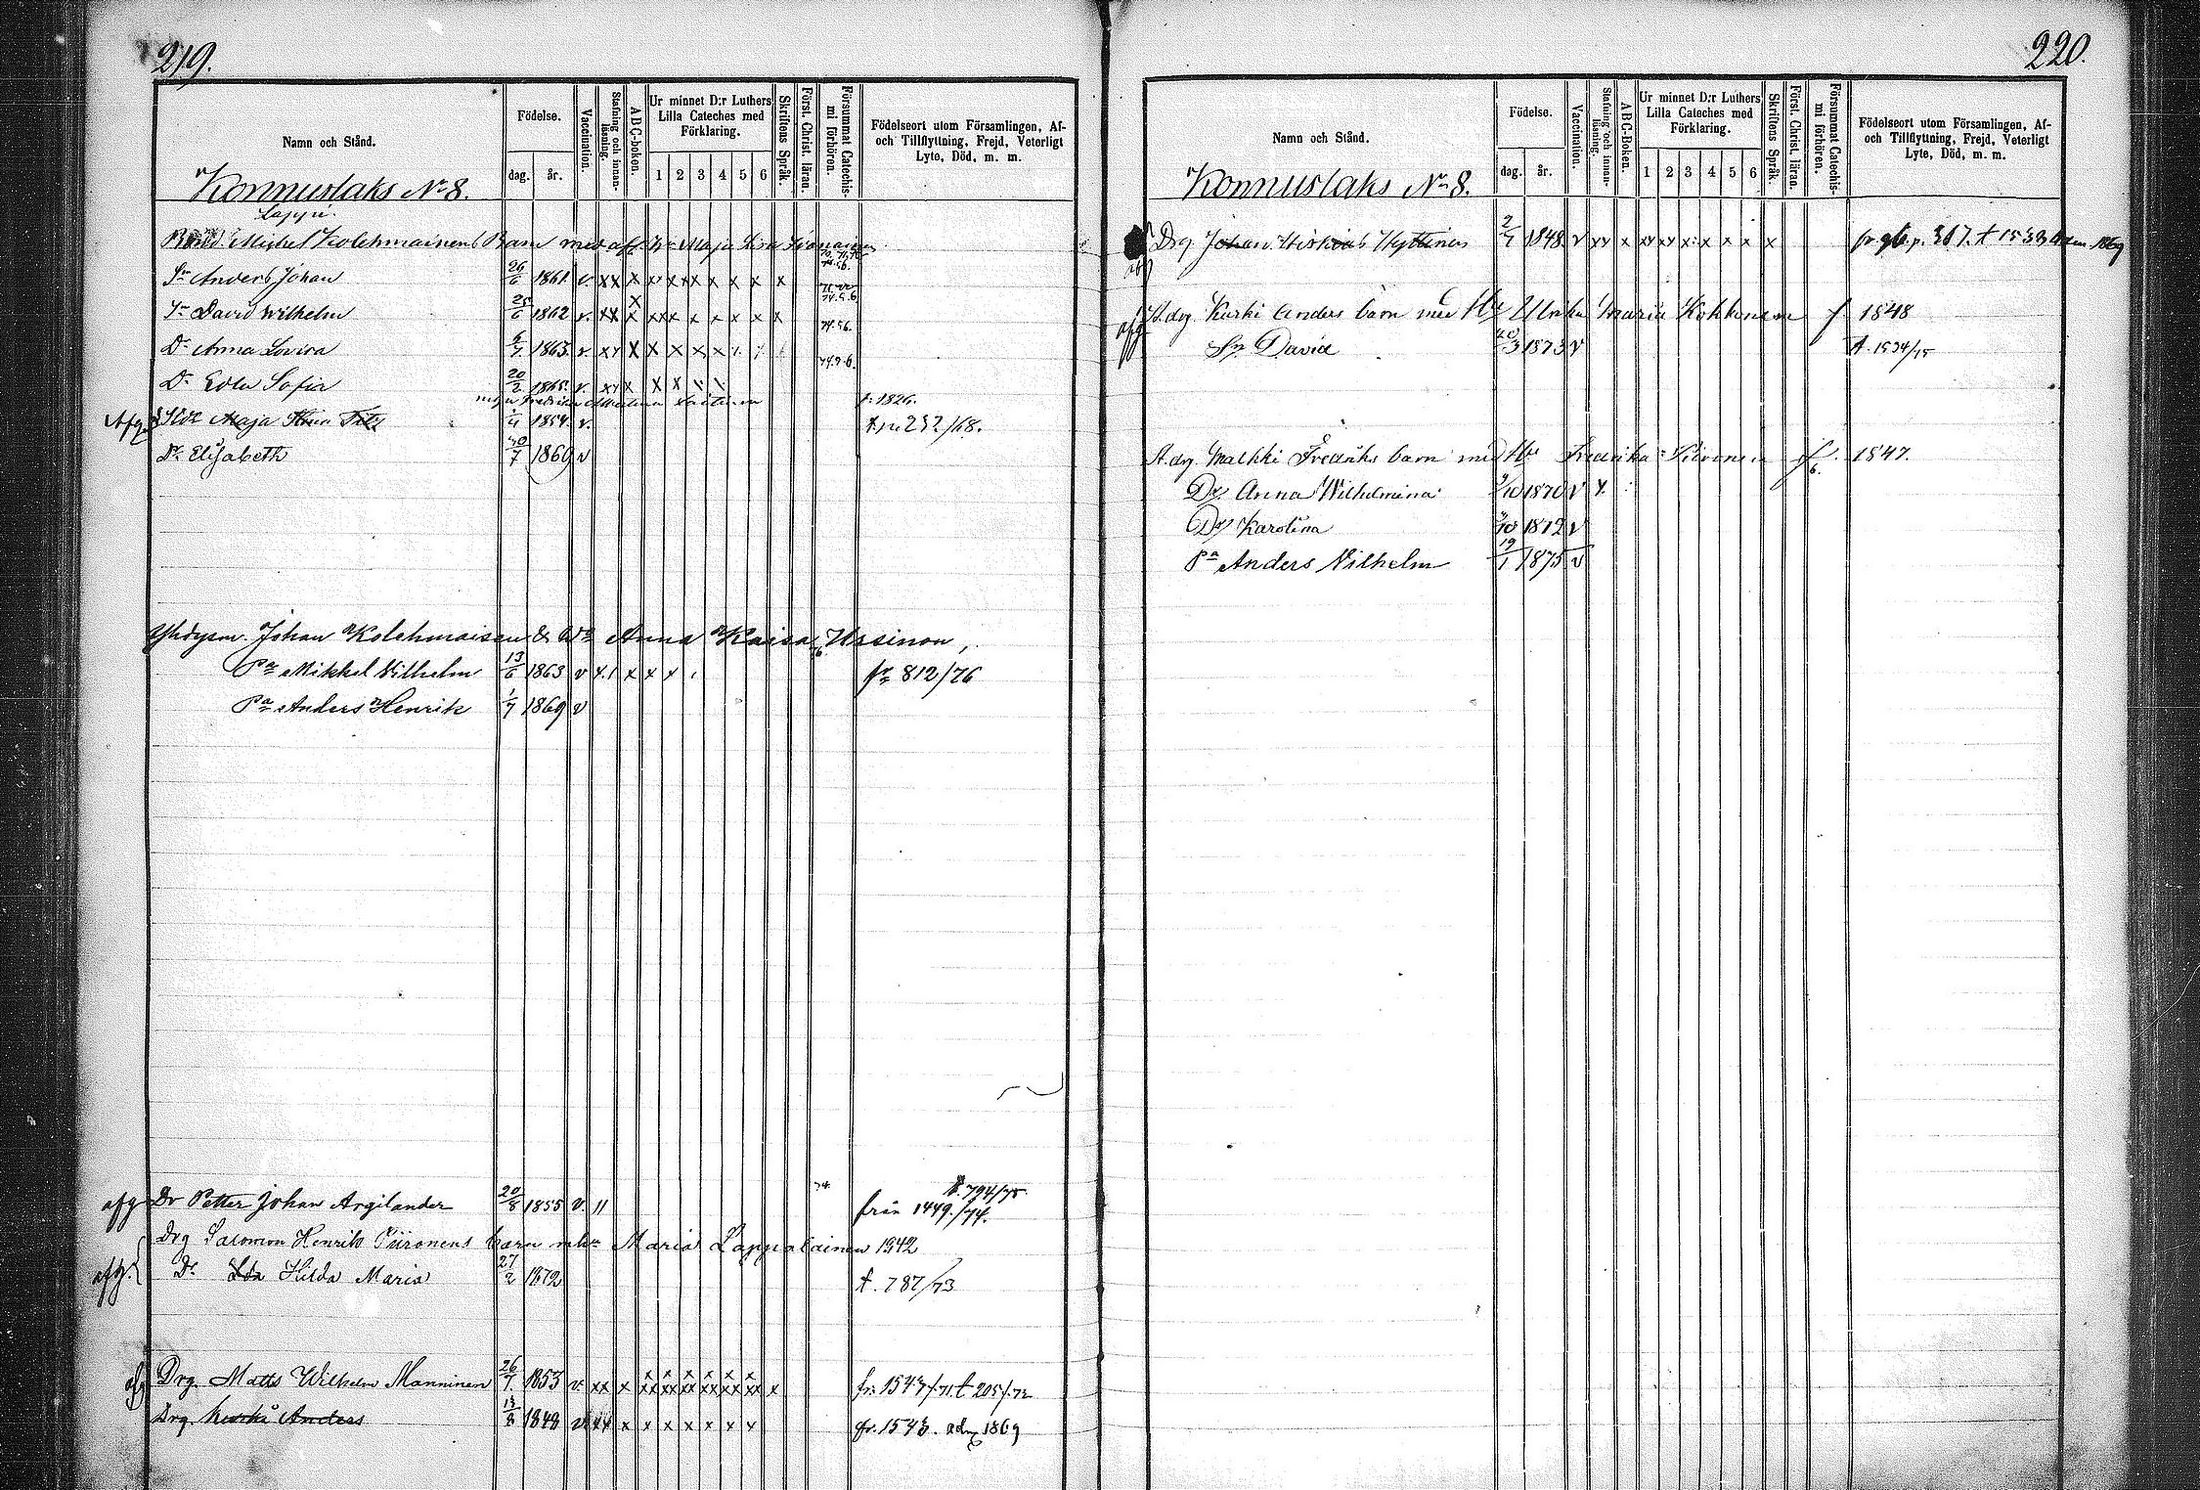 219.
Namn och Stånd.
Födelse.
dag.
år.
Vaccination.
Stafning och innan-läsning.
A B C-boken.
Ur minnet D:r Luthers
Lilla Cateches med
Förklaring.
1 2 3 4 5 6
Skriftens Språk.
Först. Christ. läran.
Försummat Catechis-mi förhören.
Födelseort utom Församlingen, Af-
och Tillflyttning, Frejd, Veterligt
Lyte, Död, m. m.
Konnuslaks No 8.
Lappi.
Mickel Kolehmainens Barn med afl. Maja Lisa
Sn Anders Johan 26/6 1861 v. xx x xx xx x x x x x
Sn David Wilhelm 25/6 1862 v. xx x xxx x x x x x
Dr Anna Lovisa 6/7 1863 v. xx x x x x x
Dr Edla Sofia 20/2 1865 v. xx x x x
f: 1826.
Afg. Maja 1/4 1854 v. 232/68.
Dr Elisabeth 30/7 1860 v
Yhdysm. Johan Kolehmaisen & Wa Anna Kaisa Ursinon,
Pa Mikkel Vilhelm 13/6 1863 v x x x x fr 812/76
Pa Anders Henrik 1/7 1869 v
afg Dr Petter Johan Argilander 20/8 1855 v. 11 t. 794/75
från 1449./74.
Drg Salomon Henrik Piironens barn m hu Maria Lappalainen 1842
afg. Dr Ida Hilda Maria 27/2 1872 t. 787/73
afg Drg. Matts Wilhelm Manninen 26/7 1853 v. xx x xx xx xx xx xx xx x fr. 1543/71 t 205/72
Drg. Kurki Anders 13/8 1848 v xx x x x x x x x fr. 1543. adm 1869
220.
Namn och Stånd.
Födelse.
dag.
år.
Vaccination.
Stafning och innan-läsning.
A B C-Boken.
Ur minnet D:r Luthers
Lilla Cateches med
Förklaring.
1 2 3 4 5 6
Skriftens Språk.
Först. Christ. läran.
Försummat Catechis-mi förhören.
Födelseort utom Församlingen, Af-
och Tillflyttning, Frejd, Veterligt
Lyte, Död, m. m.
Konnuslaks No 8.
afg Drg Johan Hyttinen 2/7 1848 v xx x xx xx x x x x x p. 307. t 1533 adm 1869
afg St. drg. Kurki Anders barn med Hu Ulrika Maria Kokkonen f 1848
Sn David 20/3 1873 v t. 1534/75
St. drg. Malkki Fredriks barn med Hu Fredrika Piironen f. 1847.
Dr Anna Wilhelmina 3/10 1870 v x.
Dr Karolina 1872 v
Pa Anders Vilhelm 19/1 1875 v